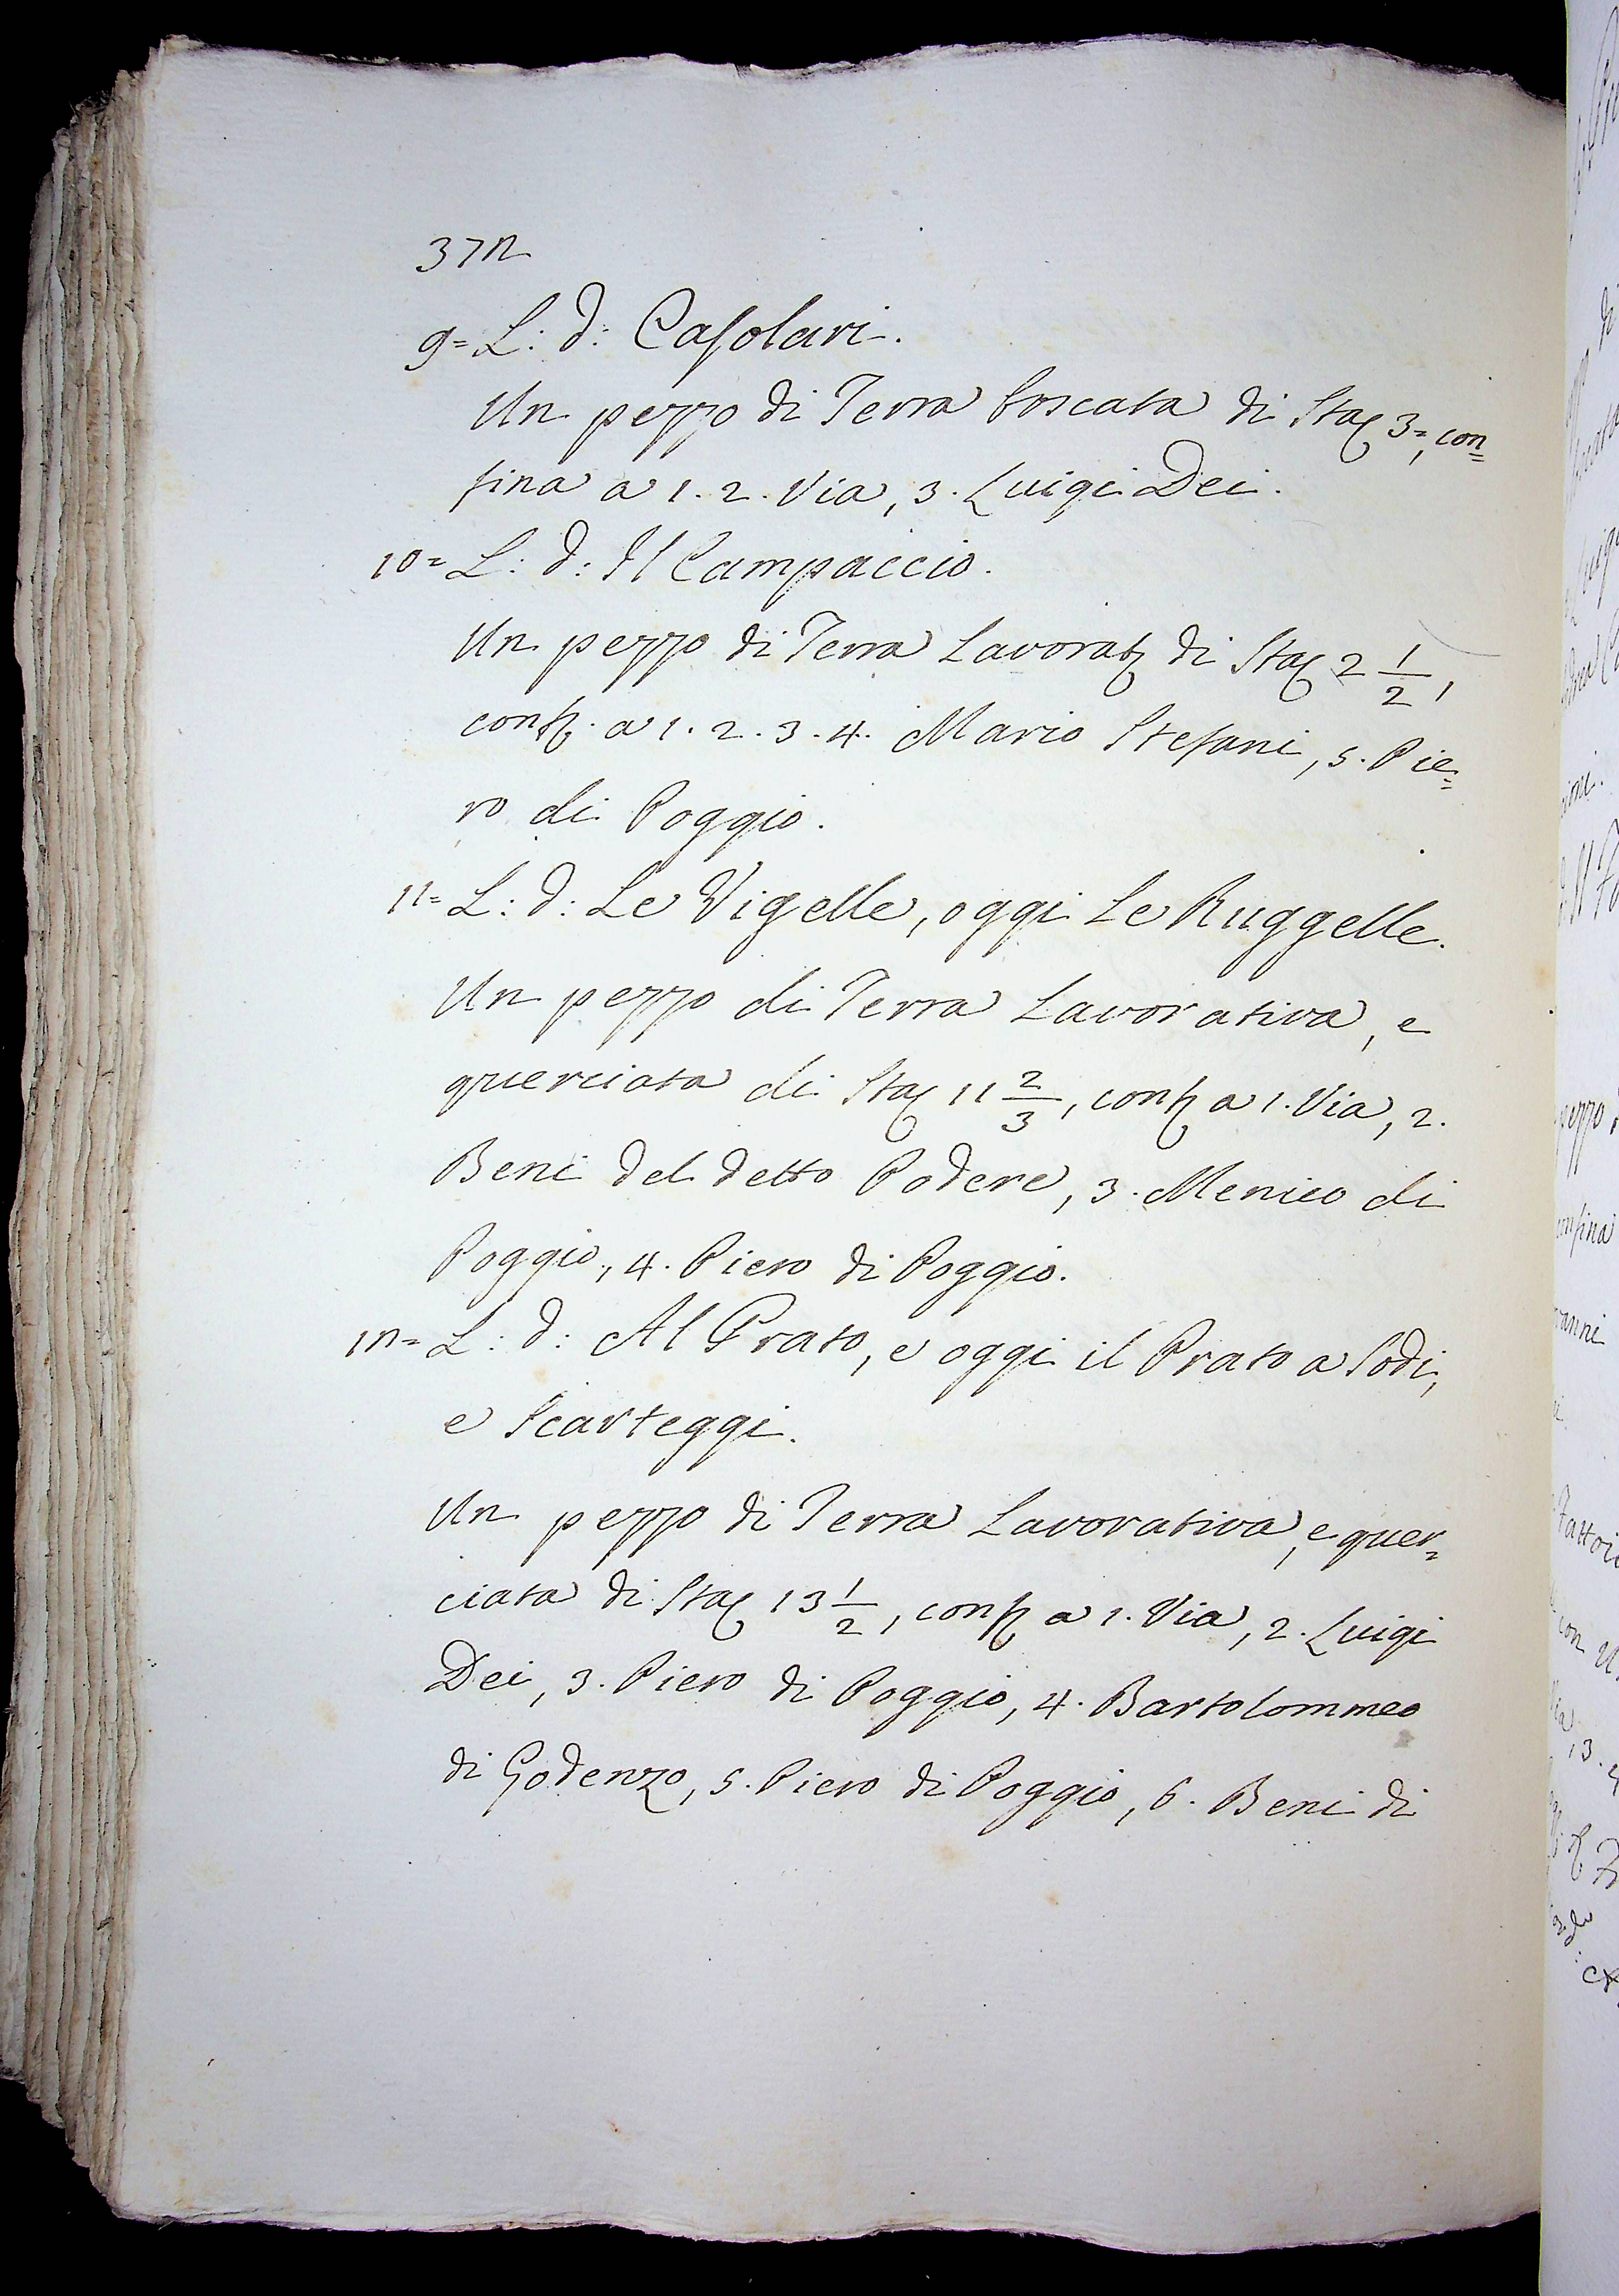 372
9= L: d: Casolari.
Un pezzo di Terra boscata di Sta: 3=, con=
fina a 1. 2. Via, 3. Luigi Dei.
10= L: d: Il Campaccio.
Un pezzo di Terra Lavorat: di Sta: 2 1/2,
conf: a 1. 2. 3. 4. Mario Stefani, 5. Pie=
ro di Poggio.
11= L: d: Le Vigelle, oggi Le Ruggelle.
Un pezzo di Terra Lavorativa, e
querciata di Sta: 11 2/3, conf: a 1. Via, 2.
Beni del detto Podere, 3. Menico di
Poggio, 4. Piero di Poggio.
12= L: d: Al Prato, e oggi il Prato a Sodi,
e Scarteggi.
Un pezzo di Terra Lavorativa, e quer=
ciata di Sta: 13 1/2, conf: a 1. Via, 2. Luigi
Dei, 3. Piero di Poggio, 4. Bartolommeo
di Godenzo, 5. Piero di Poggio, 6. Beni di